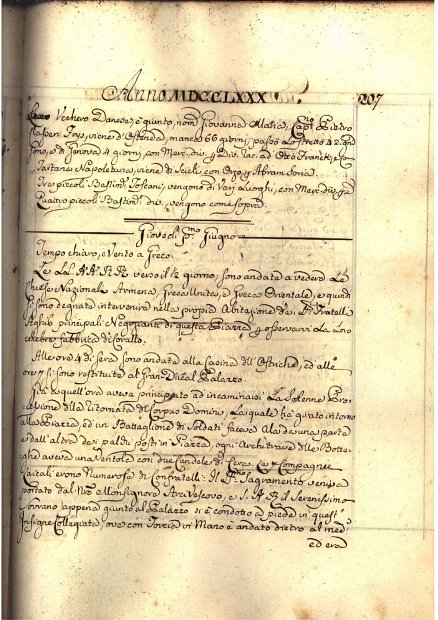 Anno MDCCLXXX. 207
Ucchero Danese, è giunto, nom.º Giovanna Maria, Cap.º Pietro
viene d'Ostenda, manca 66 giorni, passò Lo Stretto 42 
e di Genova 4 giorni, con Merc. div. p. div. rac. ad Otto Franck, e
Tartana Napoletana, viene di Scicli con Orzo p. Abram Soria
Tre piccoli Bastim.ti Toscani, vengono da Varj Luoghi, con Merc. div. p. div.
Quattro piccoli Bastim.ti div. vengono come sopra
Giovedì P.mo Giugno
Tempo chiaro, e Vento a Greco.
Le LL. AA. RR. verso il ½ giorno, sono andate a vedere Le
Chiese Nazionali Armena, Greca Unita, e Greca Orientale, e quindi
si sono degnate intervenire nella propria Abitazione de SS.ri Fratelli
Aghib principali Negozianti di questa Piazza p. osservarvi La Loro
celebre fabbrica di Corallo.
Alle ore 4 di sera sono andate alla Casina dell'Ostriche, ed alle
ore 7 si sono restituite al Gran Ducal Palazzo.
Già a quell'ora aveva principiato ad incaminarsi La Solenne Pro-
cessione della ritornata del Corpus Domini, La quale ha girato intorno
alla Piazza, ed un Battaglione di Soldati faceva Ala da una parte
e dall'altra de i palchi posti in Piazza, ogni Architrave delle Botte-
ghe aveva una Ventola con due Candele di Cera. Le Compagnie
Laicali erono Numerose di Confratelli: Il SS. Sagramento veniva
portato dal Nro Monsignore Arcivescovo, e S. A. R. il Serenissimo
Sovrano appena giunto al Palazzo si è condotto a piedi in quest'
Insigne Collegiata, ove con Torcia in Mano è andato dietro al med.º
ed era